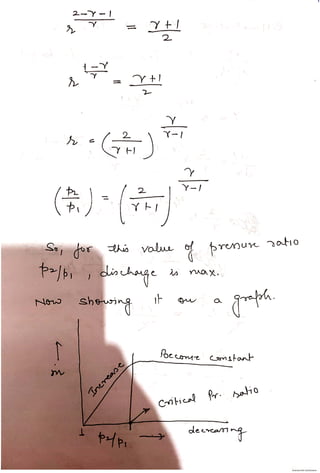 r^((2-γ-1)/γ) = (γ+1)/2
r^((1-γ)/γ) = (γ+1)/2
r = (2/(γ+1))^(γ/(γ-1))
(p2/p1) = (2/(γ+1))^(γ/(γ-1))
So, for this value of pressure ratio
p2/p1, discharge is max.
Now showing it on a graph.
Become constant
Increase
ṁ
Critical Pr. ratio
1
p2/p1 → decreasing